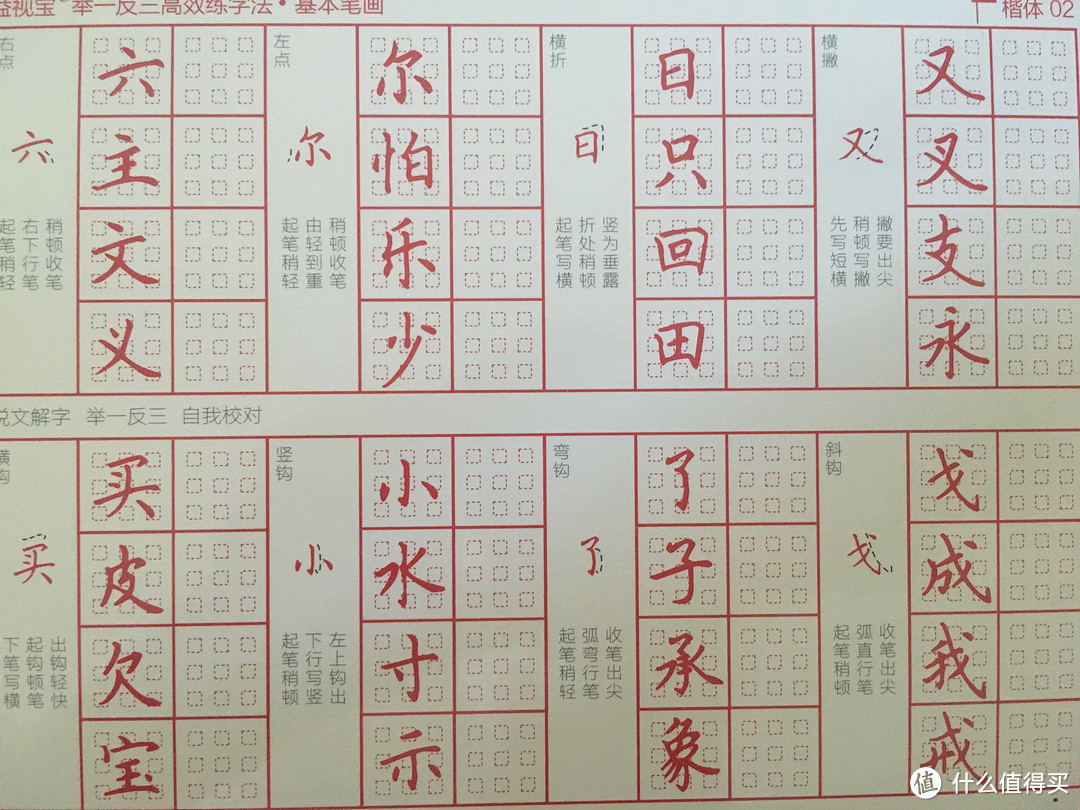 益视宝®举一反三高效练字法·基本笔画
楷体 02
右点
六
起笔稍轻
右下行笔
稍顿收笔
六
主
文
义
左点
尔
起笔稍轻
由轻到重
稍顿收笔
尔
怕
乐
少
横折
日
起笔写横
折处稍顿
竖为垂露
日
只
回
田
横撇
又
先写短横
稍顿写撇
撇要出尖
又
叉
支
永
说文解字 举一反三 自我校对
横钩
买
下笔写横
起钩顿笔
出钩轻快
买
皮
欠
宝
竖钩
小
起笔稍顿
下行写竖
左上钩出
小
水
寸
示
弯钩
了
起笔稍轻
弧弯行笔
收笔出尖
了
子
承
象
斜钩
戈
起笔稍顿
弧直行笔
收笔出尖
戈
成
我
戒
值 什么值得买